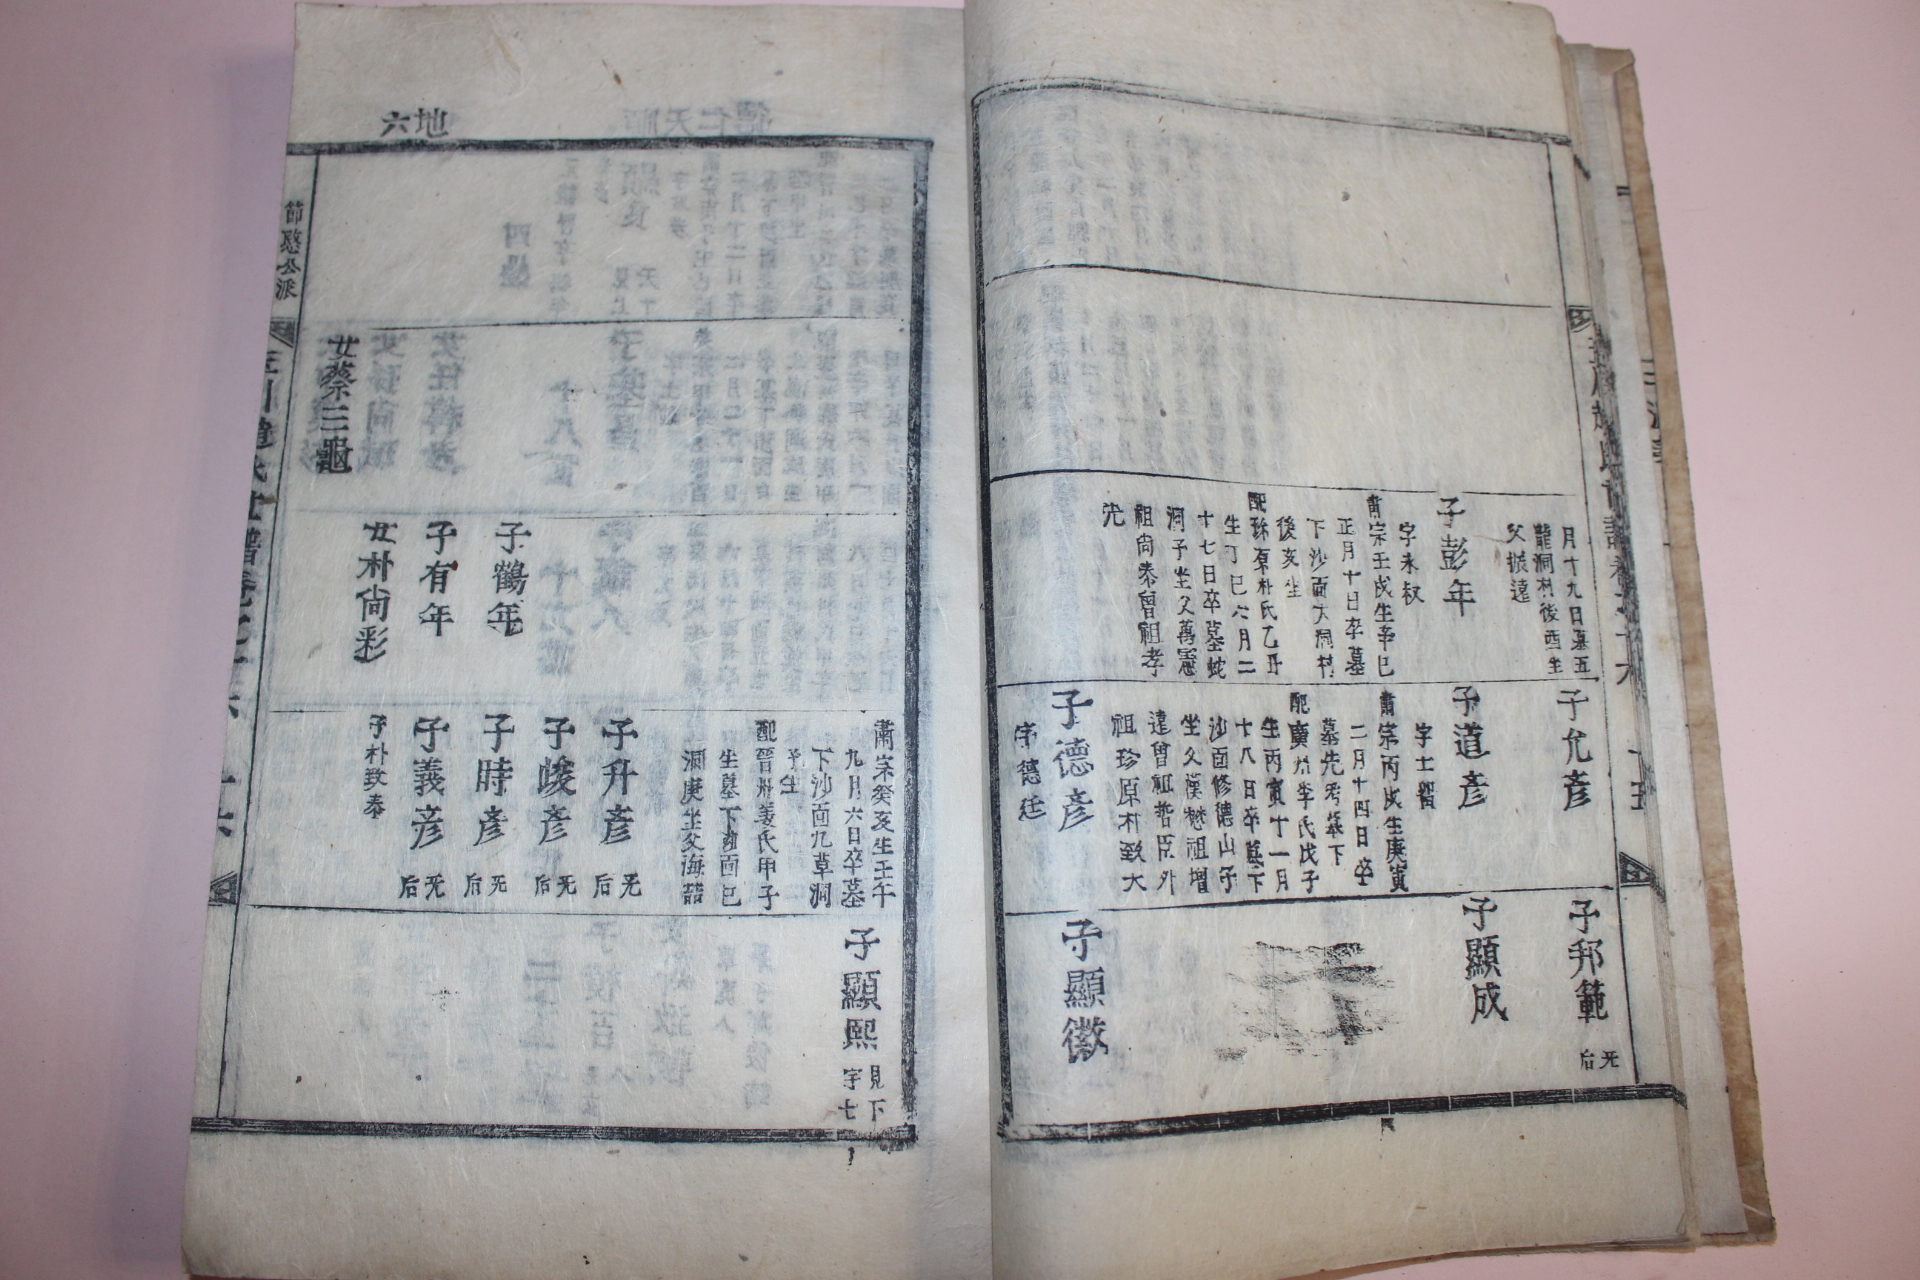 月十九日墓五
龍洞村後酉坐
父振遠
子彭年
字未叔
肅宗壬戌生辛巳
正月十日卒墓
下沙面大洞村
後亥坐
配珎原朴氏乙丑
生丁巳六月二
十七日卒墓蛇
洞子坐父萬憲
祖尚泰曾祖孝
先
子允彦
子道彦
字士習
肅宗丙戌生庚寅
二月十四日卒
墓先考墓下
配廣州李氏戊子
生丙寅十一月
十八日卒墓下
沙面修德山子
坐父漢楙祖增
遠曾祖哲臣外
祖珍原朴致大
子德彦
字德廷
子邦範
无
后
子顯成
子顯徽
地
六
節愍公派
女蔡三龜
子鶴年
子有年
女朴尙彩
肅宗癸亥生壬午
九月六日卒墓
下沙面九草洞
子坐
配晉州姜氏甲子
生墓下南面巳
洞庚坐父海喆
子升彦
无
后
子峻彦
无
后
子時彦
无
后
子義彦
无
后
子朴致泰
子顯熙
見下
字七